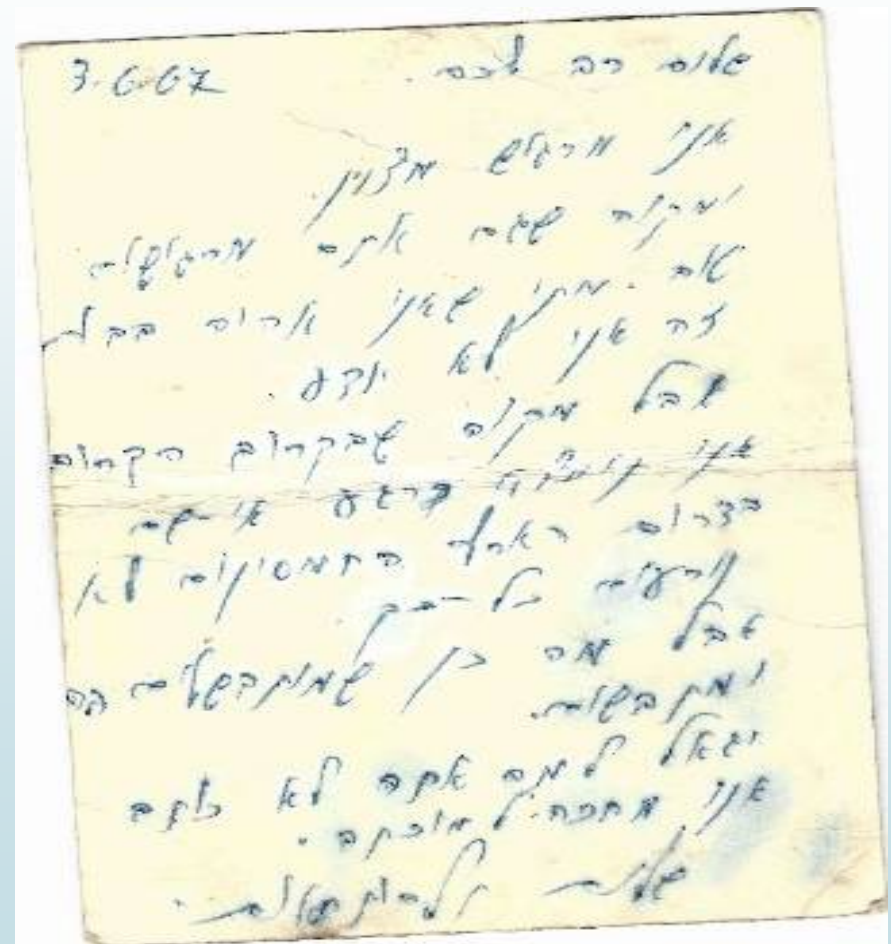 שלום רב לכם. 3.6.67
אני מרגיש מצוין.
ומקוה שגם אתם מרגישים
טוב. מתי שאני אהיה בבית
זה אני לא יודע.
אבל מקוה שבקרוב הקרוב
אני כרגע אי שם
בדרום הארץ החמסינים לא
נורעים כל כך.
אבל מה כן שמותבשלים פה
ומתבשות.
יגאל למה אתה לא כותב
אני מחכה למכתב.
שלום ולהתראות.